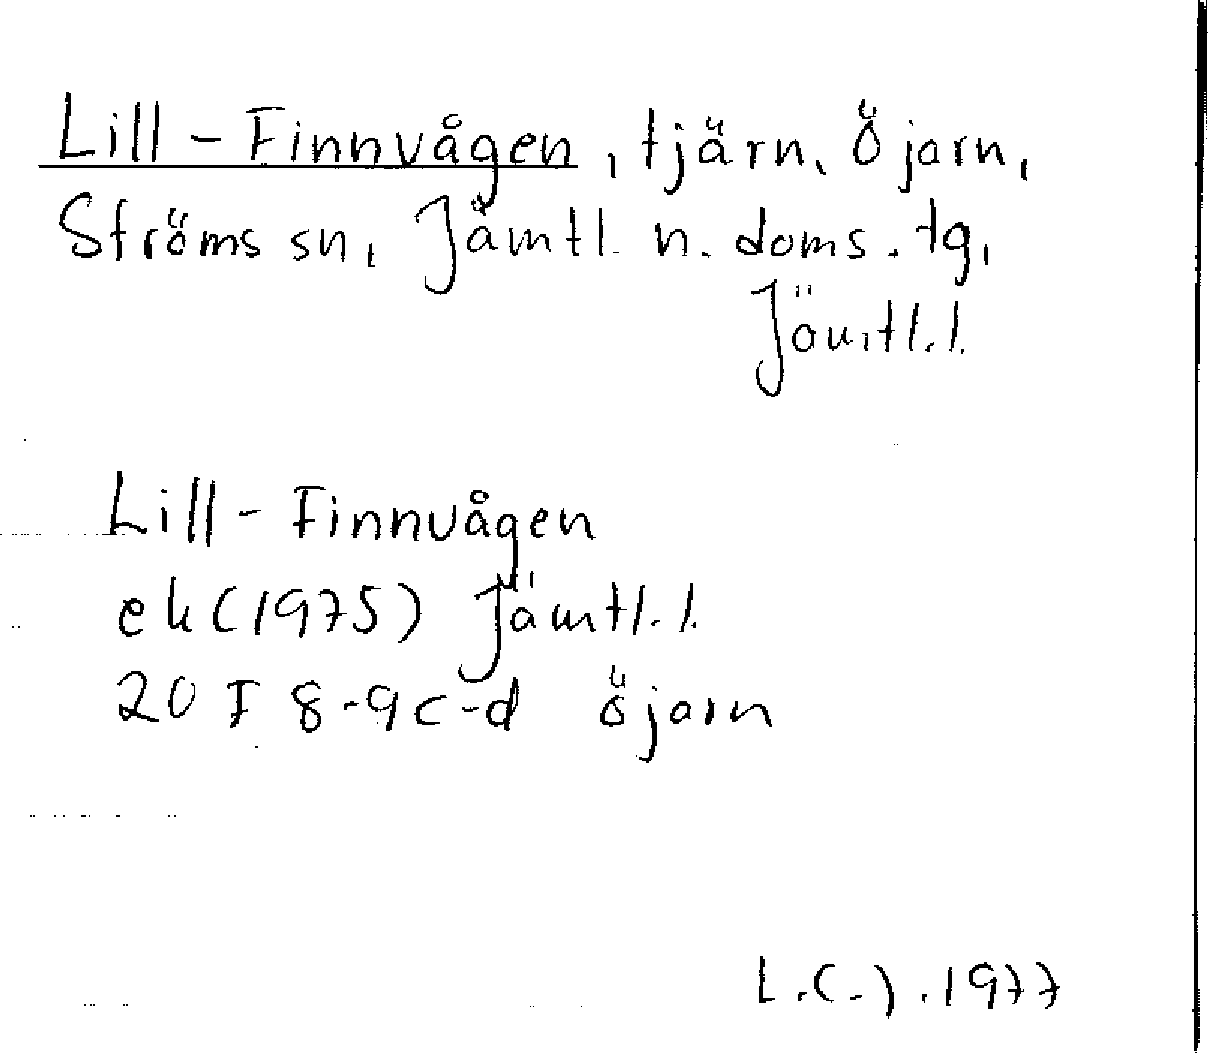 Lill-Finnvågen, tjärn, Öjarn,
Ströms sn, Jämtl. n. doms. tg,
Jämtl.l.
Lill-Finnvågen
ek (1975) Jämtl.l.
20 F 8-9 c-d Öjarn
L.C.J. 1977